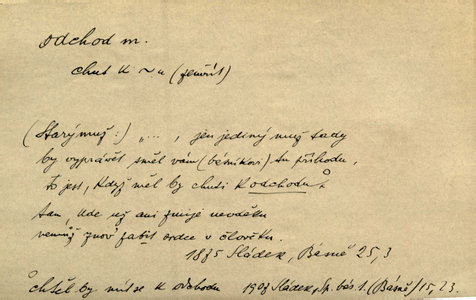 odchod m.
chut k ~u (zemřít)
(Starý muž:) "..., jen jediný muž tady
by vyprávět směl vám (básníkovi) tu příhodu,
to jest, když měl by chuti k odchodu°
tam, kde už ani zmije nevděku
nemůž znovu zabít srdce v člověku.
1875 Sládek, Básně 25,3
°chtěl by muž se k odchodu 1907 Sládek, Sp. bás. 1. (Básně) 15, 23.